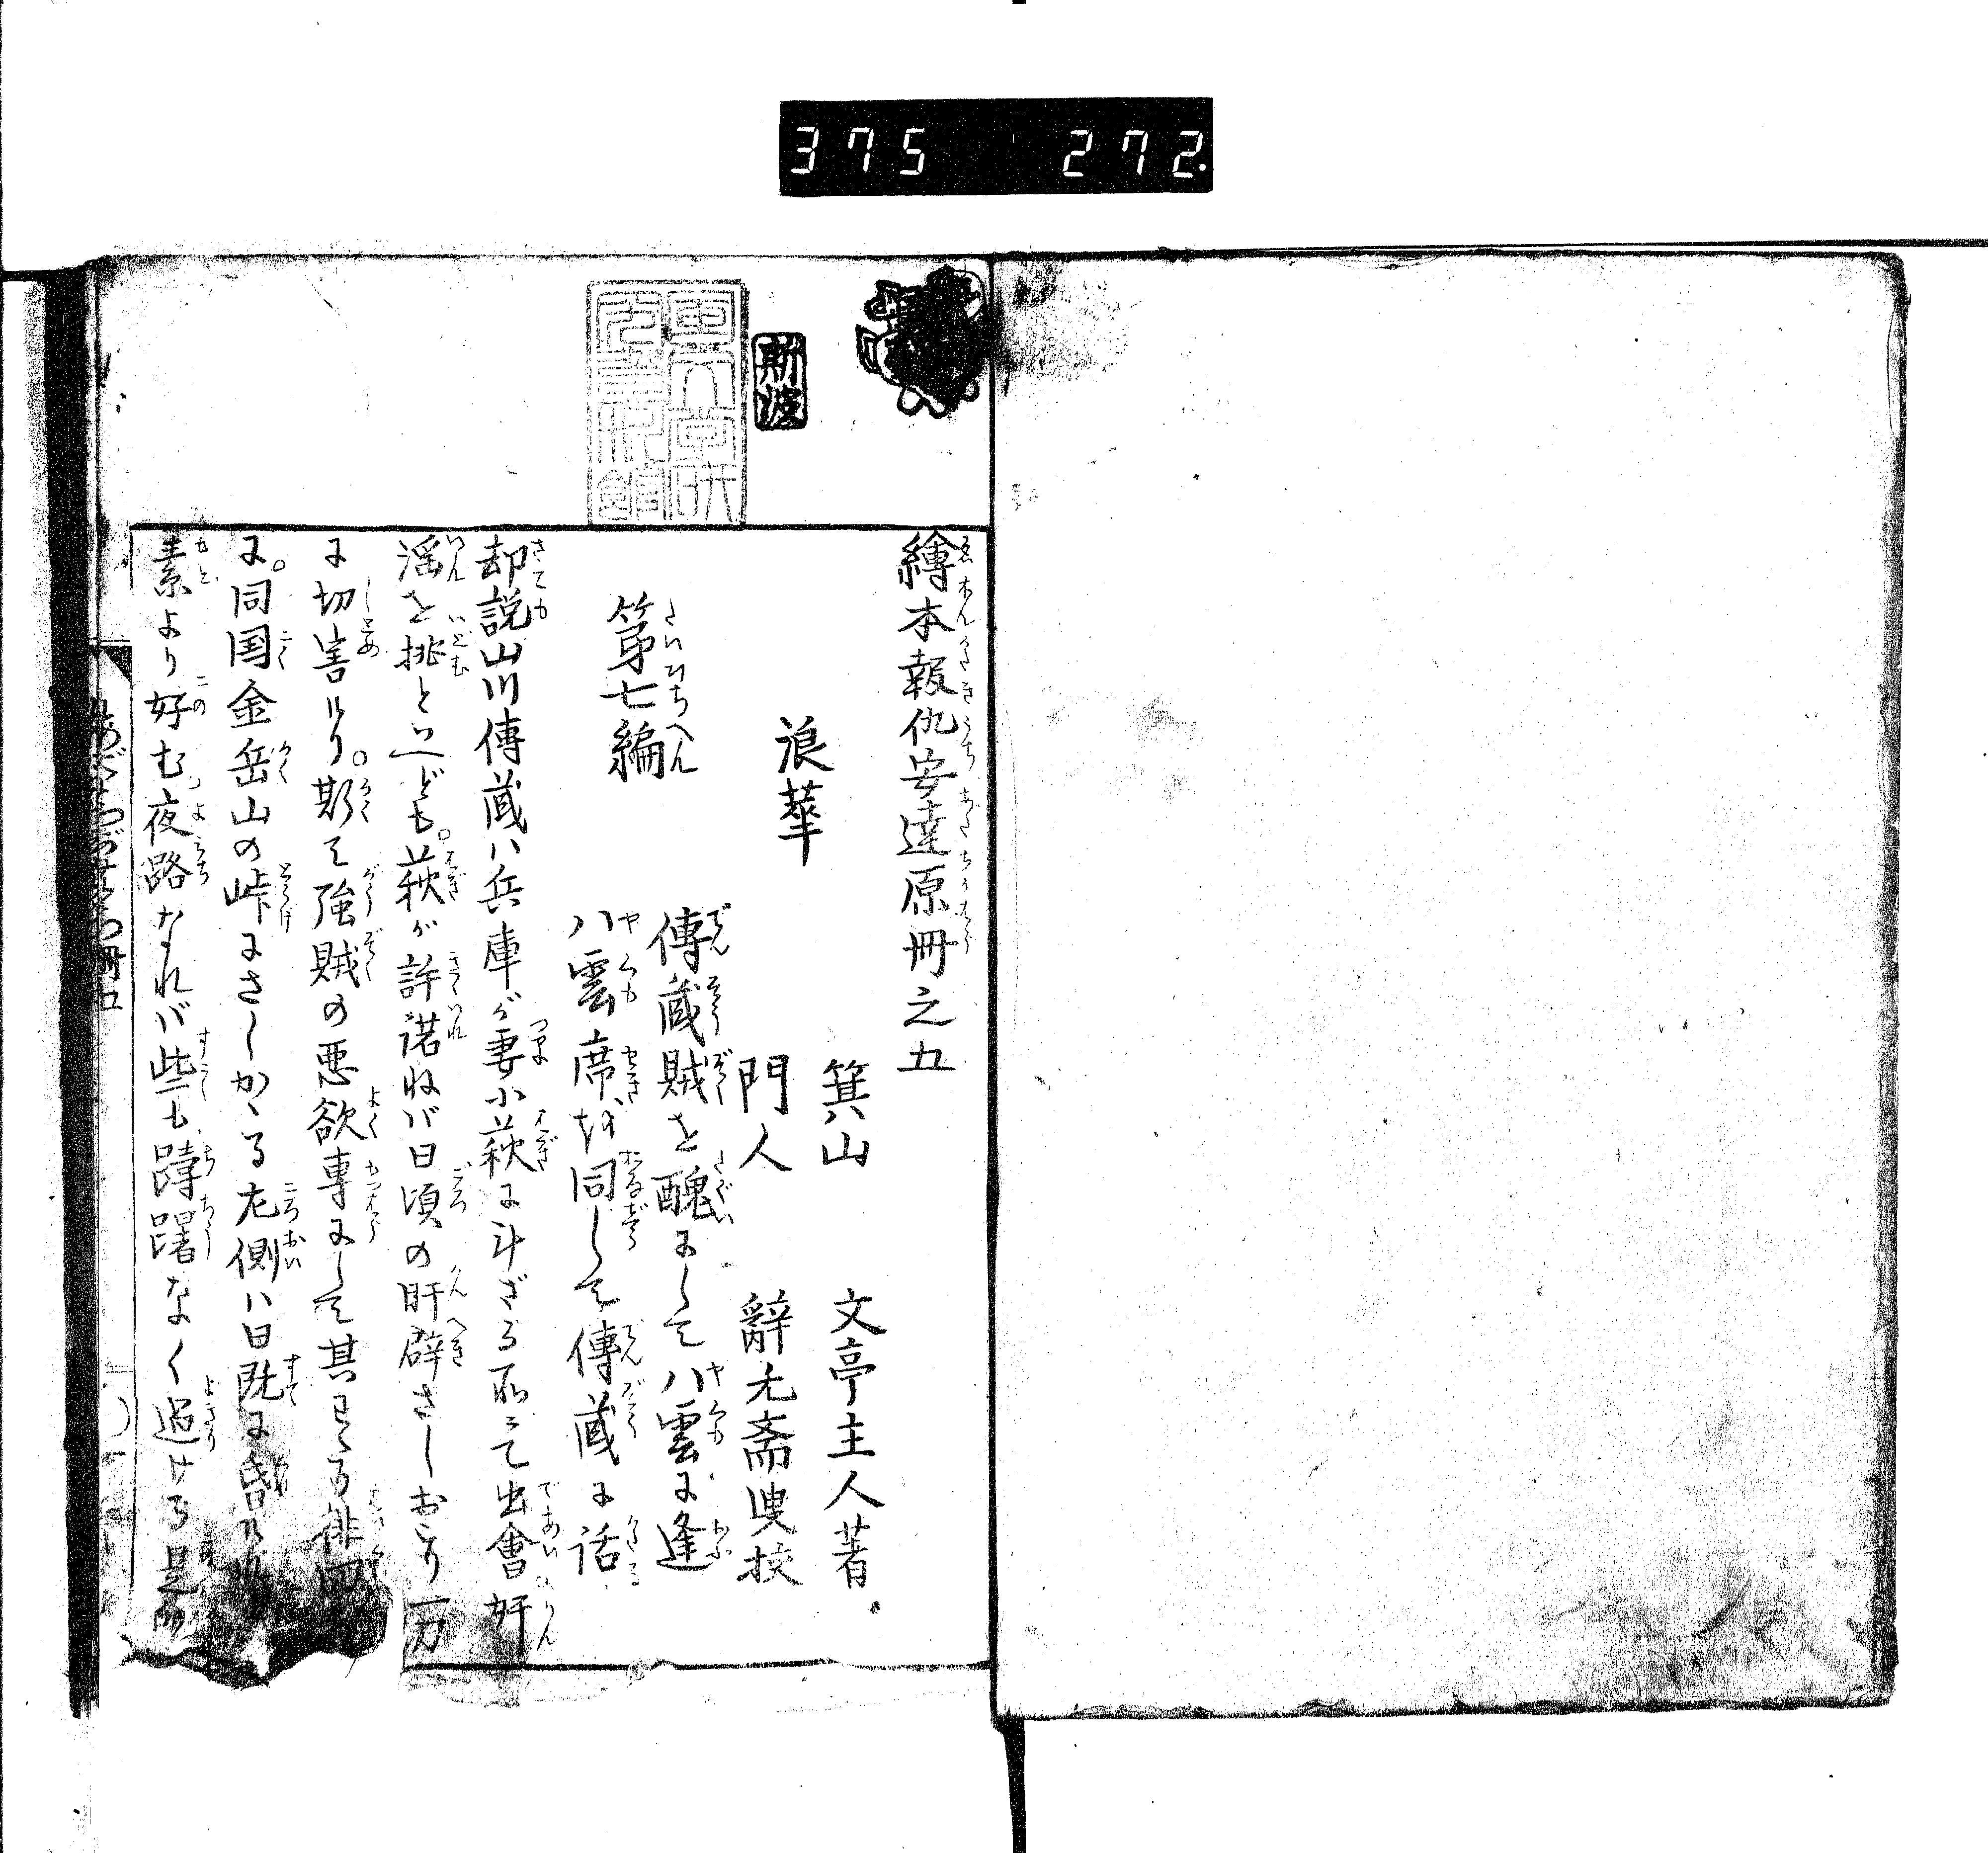 375 272
斯波
繪本報仇安達原冊之五
箕山 文亭主人著
浪華
門人 辭无斎叟挍
第七編
傳蔵賊を醜にして八雲に逢
八雲席を同して傳蔵に話
却説山川傳蔵ハ兵庫が妻小萩に斗ざる所にて出會奸
滛を挑といへども。萩が許諾ねバ日頃の肝癖さしおこり一刀
に切害けり。斯て強賊の悪欲専にして其わたる徘徊
に。同国金岳山の峠にさしかゝる左側ハ日既に昏
素より好む夜路なれバ些も躊躇なく過ける是